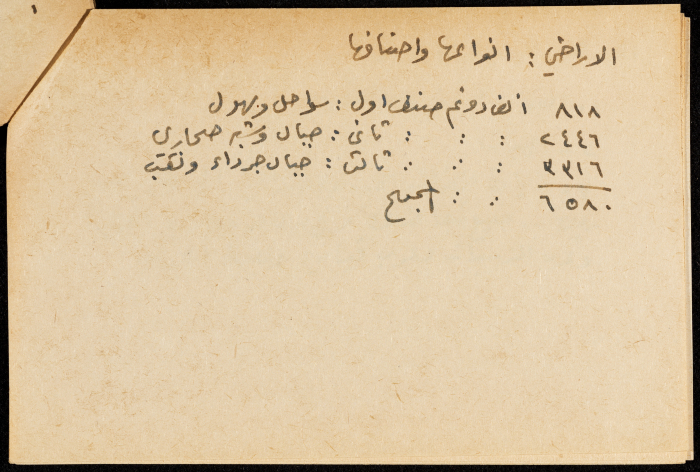 ١
الاراضي : انواعها واصنافها
٨١٨ الف دونم صنف اول : سواحل وسهول
٢٤٤٦ : : : ثاني : جبال وشبه صحارى
٣٣١٦ : : : ثالث : جبال جرداء ونقب
٦٥٨٠ : : المجموع